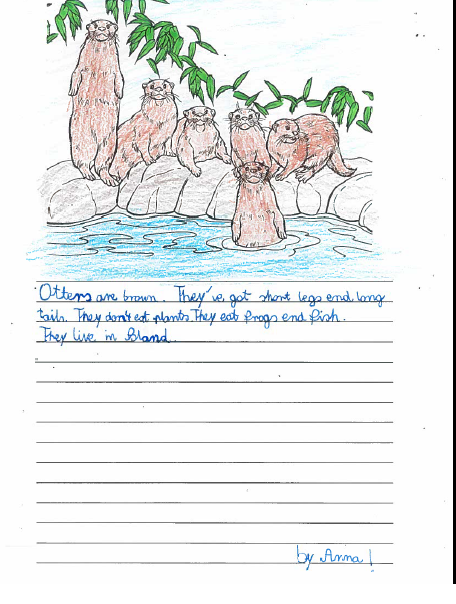 Otters are brown. They've got short legs end long
tails. They don't eat plants. They eat frogs end fish.
They live in Bland.
by Anna!